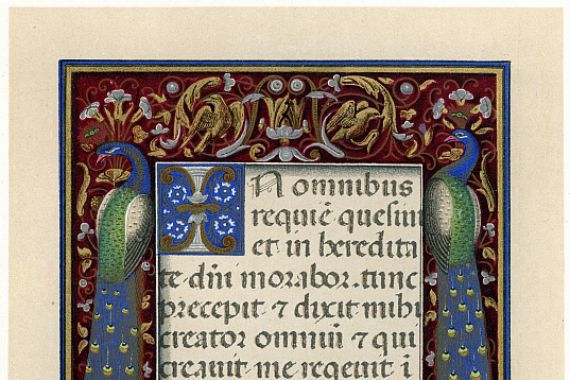 IN omnibus
requiē quesiui
et in heredita
te dñi morabor. tunc
precepit ⁊ dixit mihi
creator omniū ⁊ qui
creauit me reqeuit i